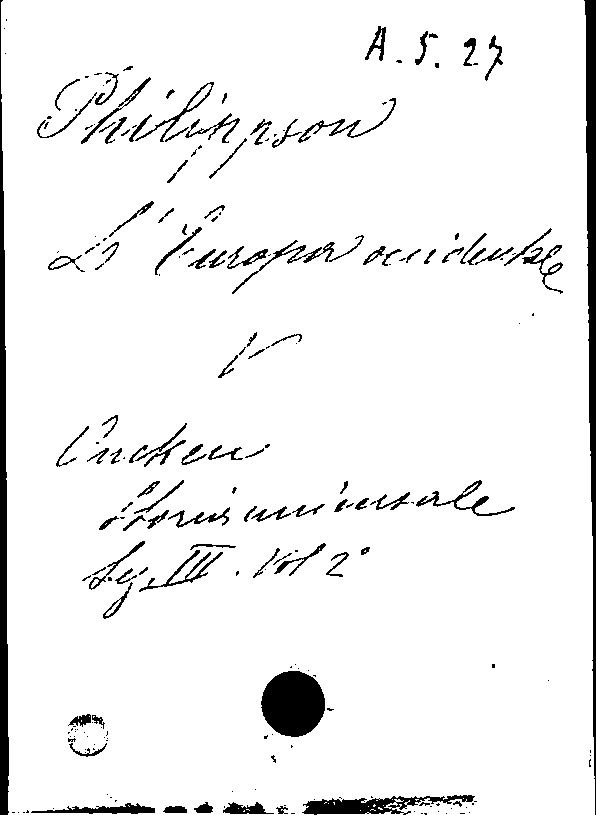 A. 5. 27
Philippson
L'Europa occidentale
V
Oncken
Storia universale
Sez. III. Vol 2°